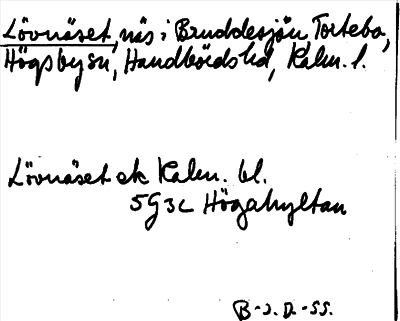 Lövnäset, näs i Bruddesjön, Tortebo,
Högsby sn, Handbörds hd, Kalm. l.
Lövnäset ek Kalm. bl.
5G3c Högahyltan
B-J. D.-SS.